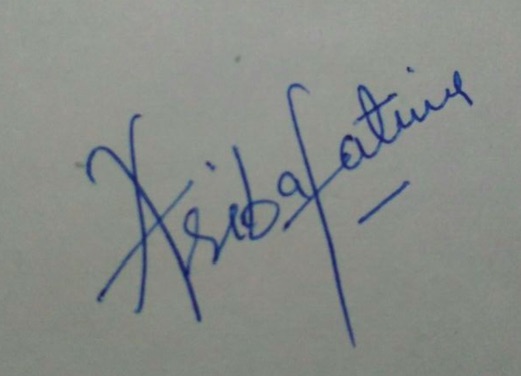 Asiba fatima